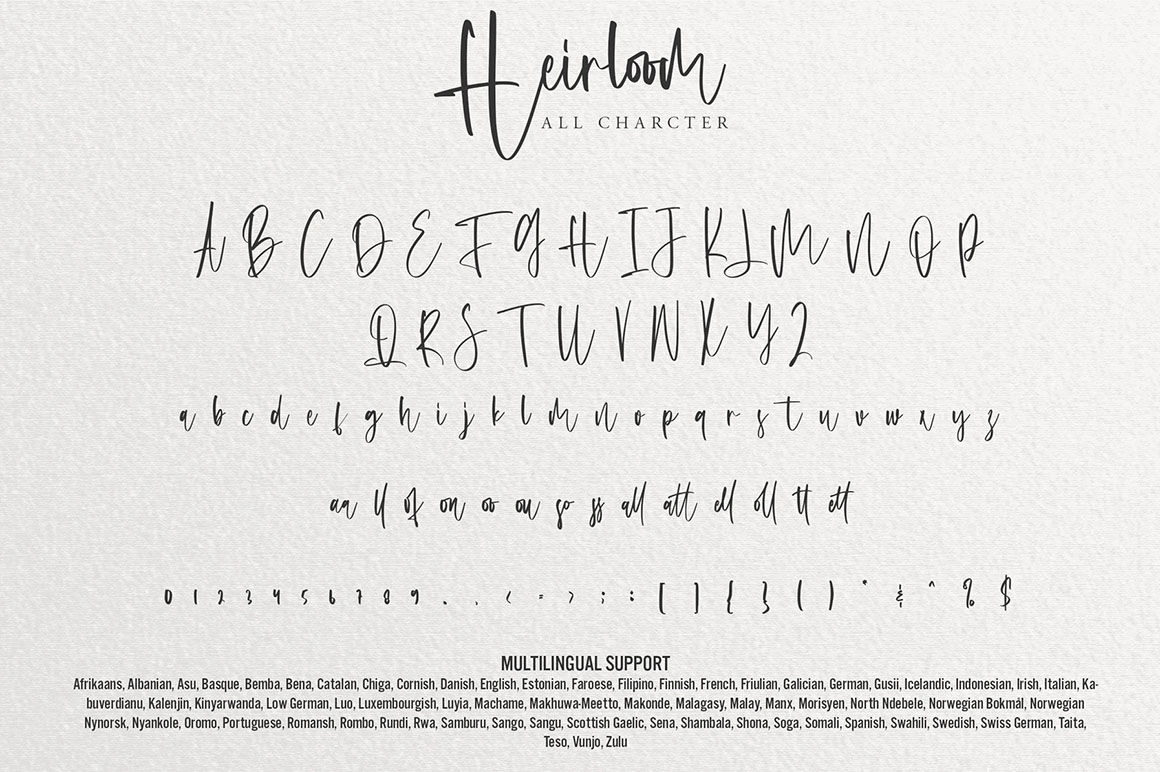 Heirloom
ALL CHARCTER
A B C D E F G H I J K L M N O P
Q R S T U V W X Y Z
a b c d e f g h i j k l m n o p q r s t u v w x y z
aa ll of on oo ou so ss all att ell oll tt ett
0 1 2 3 4 5 6 7 8 9 . , < = > ; : [ ] { } ( ) * & ^ % $
MULTILINGUAL SUPPORT
Afrikaans, Albanian, Asu, Basque, Bemba, Bena, Catalan, Chiga, Cornish, Danish, English, Estonian, Faroese, Filipino, Finnish, French, Friulian, Galician, German, Gusii, Icelandic, Indonesian, Irish, Italian, Ka-
buverdianu, Kalenjin, Kinyarwanda, Low German, Luo, Luxembourgish, Luyia, Machame, Makhuwa-Meetto, Makonde, Malagasy, Malay, Manx, Morisyen, North Ndebele, Norwegian Bokmål, Norwegian
Nynorsk, Nyankole, Oromo, Portuguese, Romansh, Rombo, Rundi, Rwa, Samburu, Sango, Sangu, Scottish Gaelic, Sena, Shambala, Shona, Soga, Somali, Spanish, Swahili, Swedish, Swiss German, Taita,
Teso, Vunjo, Zulu